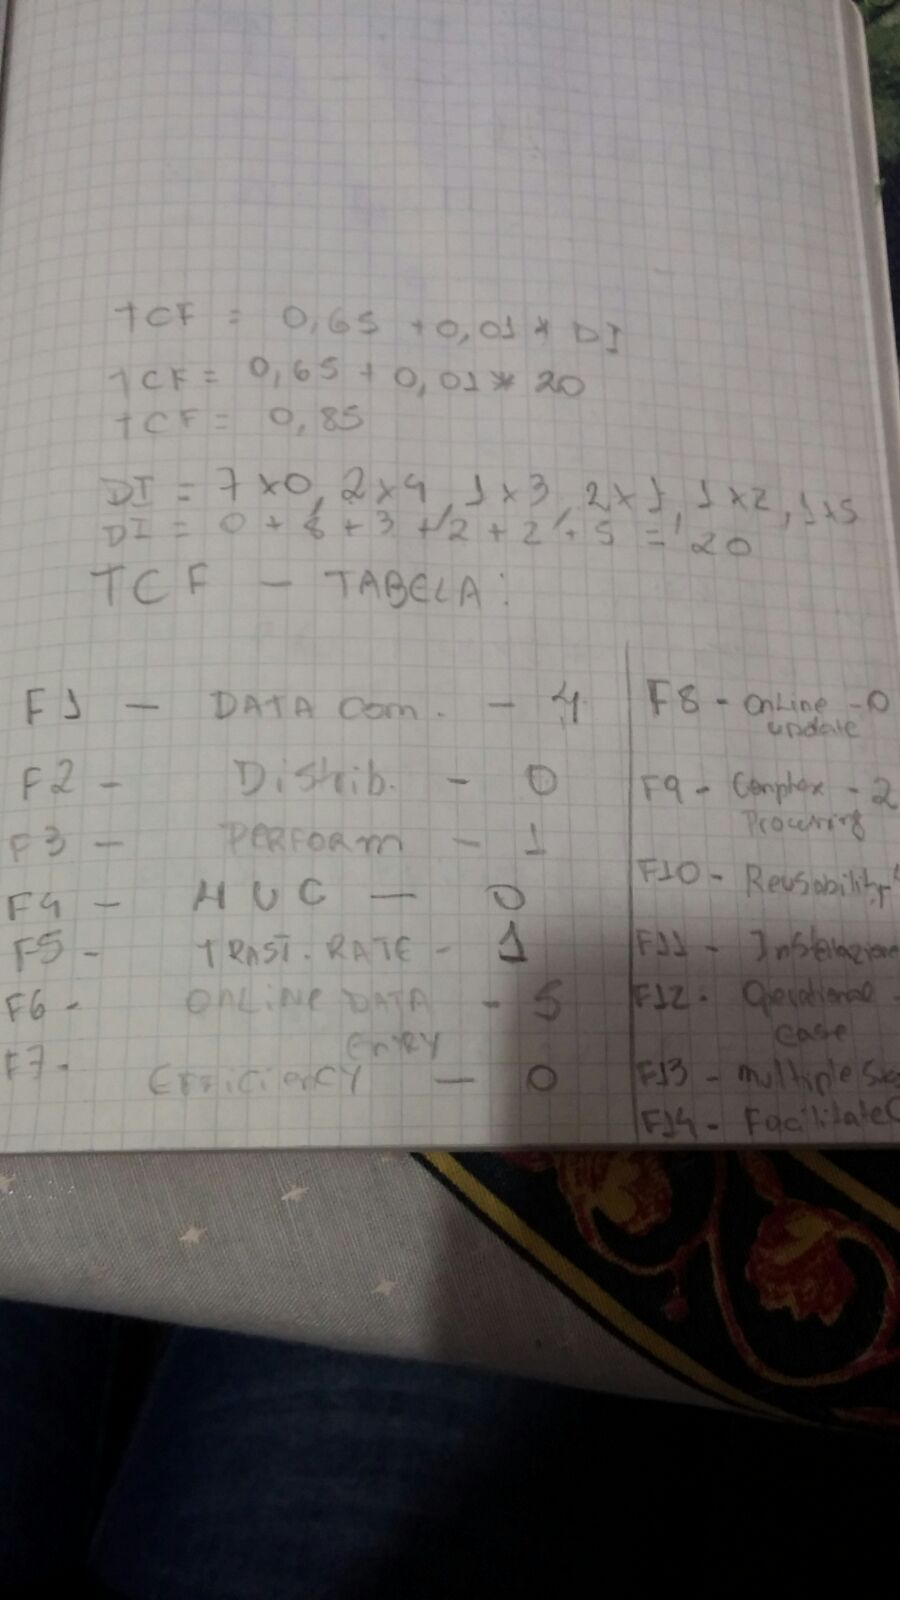 TCF = 0,65 + 0,01 * DI
TCF = 0,65 + 0,01 * 20
TCF = 0,85
DI = 7x0, 2x4, 1x3, 2x1, 1x2, 1x5
DI = 0 + 8 + 3 + 2 + 2 + 5 = 20
TCF - TABELA:
F1 - DATA com. - 4
F2 - Distrib. - 0
F3 - PERFORM - 1
F4 - HUC - 0
F5 - TRAST. RATE - 1
F6 - ONLINE DATA - 5
EnRY
F7 - EFFiciencY - 0
F8 - OnLine - 0
update
F9 - Complex - 2
Processing
F10 - Reusability
F11 -
F12 - Operational -
ease
F13 - multiple
F14 - Facilitate